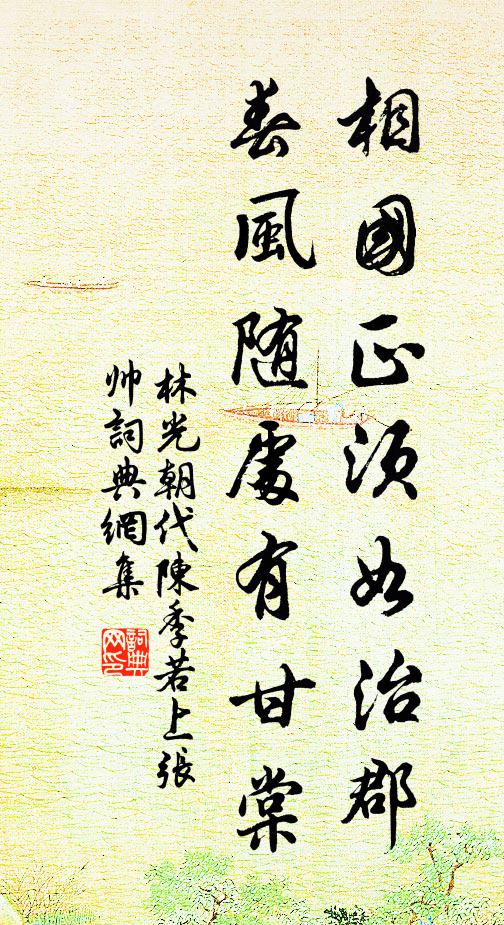 相國正須如治郡
春風随處有甘棠
林光朝代陳季若上張
帅詞典網集
詞典网印